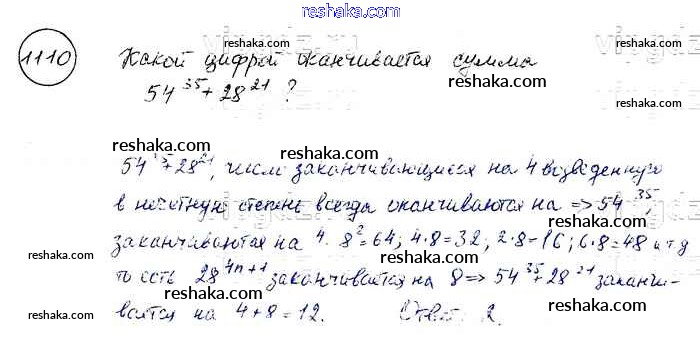 reshaka.com
1110 Какой цифрой оканчивается сумма
reshaka.com reshaka.com reshaka.com
54^35 + 28^21 ?
reshaka.com reshaka.com
54^35 + 28^21, числа заканчивающиеся на 4 возведенную
reshaka.com
в нечетную степень всегда оканчиваются на => 54^35,
reshaka.com reshaka.com
заканчиваются на 4. 8^2=64; 4·8=32; 2·8=16; 6·8=48 и тд
reshaka.com
то есть 28^4n+1 заканчивается на 8 => 54^35+28^21 заканчи-
reshaka.com reshaka.com
вается на 4+8=12. Ответ: 2.
reshaka.com reshaka.com
reshaka.com